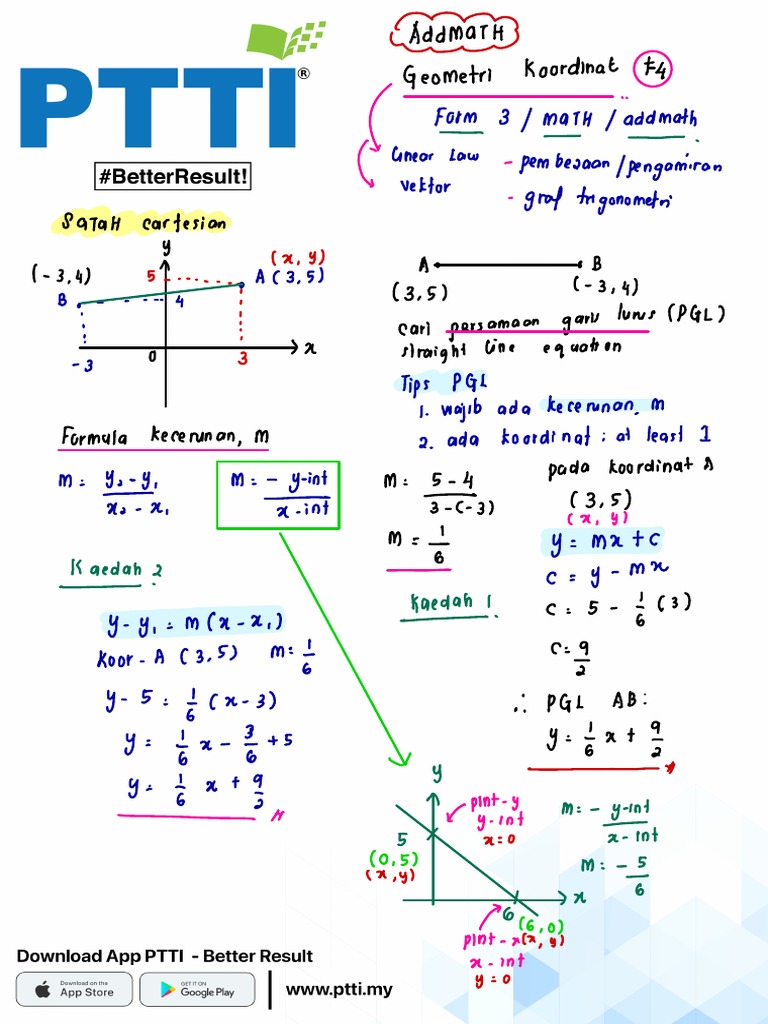 PTTI®
#BetterResult!
ADDMATH
Geometri Koordinat F4
Form 3 / MATH / addmath
Linear Law - pembezaan / pengamiran
Vektor - graf trigonometri
SATAH cartesian
y
(x, y)
(-3, 4)
5
A (3, 5)
B
4
-3
0
3
x
A
B
(3, 5)
(-3, 4)
cari persamaan garis lurus (PGL)
straight line equation
Tips PGL
1. wajib ada kecerunan, m
2. ada koordinat ; at least 1
Formula kecerunan, M
M = y₂ - y₁ / x₂ - x₁
M = - y-int / x-int
M = 5 - 4 / 3 - (-3)
M = 1/6
pada koordinat A
(3, 5)
(x, y)
y = mx + c
c = y - mx
c = 5 - 1/6 (3)
c = 9/2
Kaedah 1
∴ PGL AB:
y = 1/6 x + 9/2
Kaedah 2
y - y₁ = m (x - x₁)
Koor - A (3, 5) M = 1/6
y - 5 = 1/6 (x - 3)
y = 1/6 x - 3/6 + 5
y = 1/6 x + 9/2
y
pint-y
y-int
x = 0
5
(0, 5)
(x, y)
x
6
(6, 0)
pint-x (x, y)
x-int
y = 0
M = - y-int / x-int
M = - 5/6
Download App PTTI - Better Result
Download on the
App Store
GET IT ON
Google Play
www.ptti.my